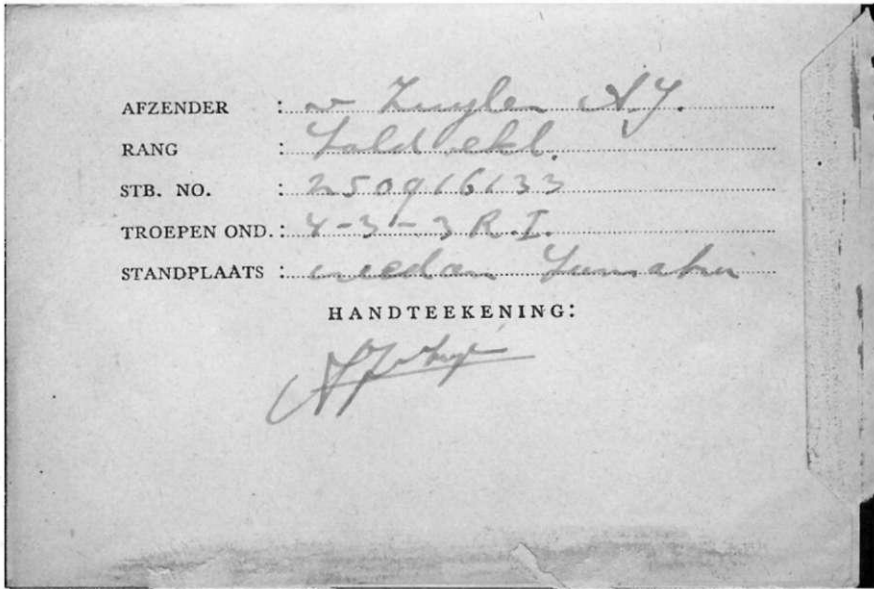 AFZENDER : v Zuylen A.J.
RANG : Sold ekl.
STB. NO. : 250916133
TROEPEN OND. : 4-3-3 R.I.
STANDPLAATS : Medan Sumatra
HANDTEEKENING: